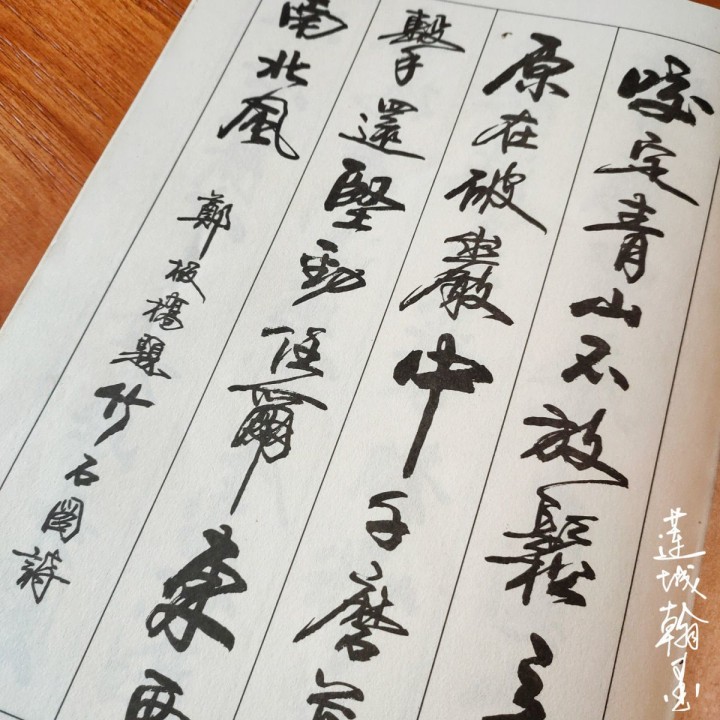 咬定青山不放鬆立
原在破巖中千磨萬
擊還堅勁任爾東西
南北風
鄭板橋題竹石圖詩
蓮城翰墨